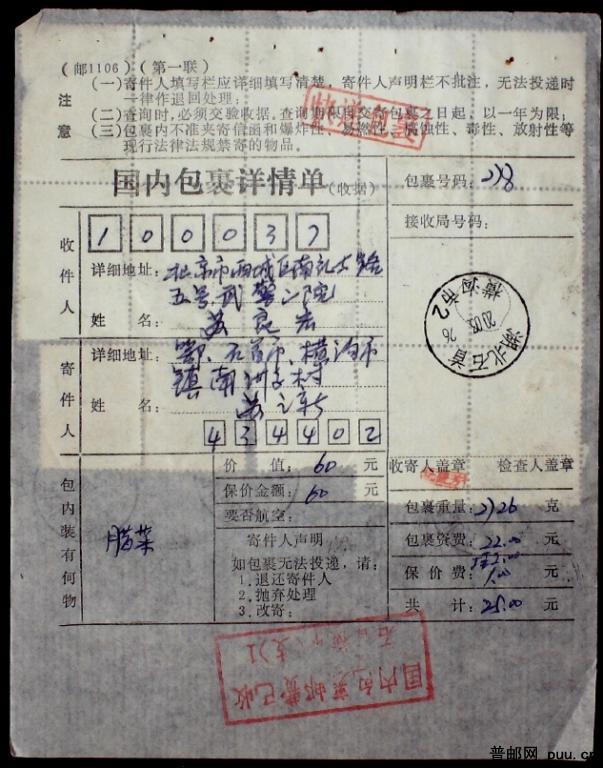 （邮1106）（第一联）
注意
（一）寄件人填写栏应详细填写清楚，寄件人声明栏不批注，无法投递时
一律作退回处理；
（二）查询时，必须交验收据。查询期限自交寄包裹之日起，以一年为限；
（三）包裹内不准夹寄信函和爆炸性、易燃性、腐蚀性、毒性、放射性等
现行法律法规禁寄的物品。
国内包裹详情单（收据）
包裹号码：278
接收局号码：
收件人
100037
详细地址：北京市西城区南礼士路
五号武警二院
姓 名：苏良宏
寄件人
详细地址：鄂石首市横沟市
镇南洲子村
姓 名：苏之新
434402
湖北石首
横沟市2
包内装有何物
腊菜
价 值：60 元
保价金额：60 元
要否航空：
寄件人声明
如包裹无法投递，请：
1.退还寄件人
2.抛弃处理
3.改寄：
收寄人盖章 检查人盖章
包裹重量：2726 克
包裹资费：22.00 元
保价费：1.00 元
共 计：25.00 元
国内包裹邮费已收
普邮网 puu.cn